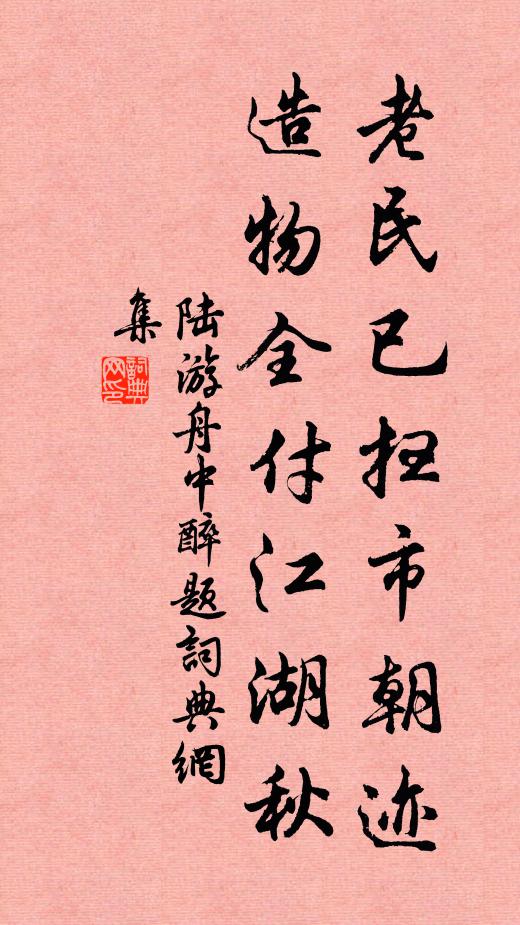 老民已扫市朝迹
造物全付江湖秋
陆游舟中醉题词典網
集
詞典
网印